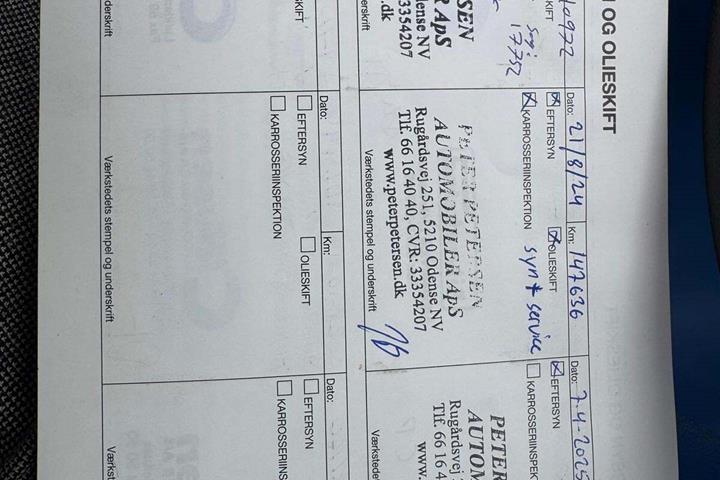 OG OLIESKIFT
40972
SKIFT
Sag:
17752
SEN
R ApS
ense NV
33354207
.dk
underskrift
Dato: 21/8/24 Km: 147636
☒ EFTERSYN ☒ OLIESKIFT
☒ KARROSSERIINSPEKTION syn + service
PETER PETERSEN
AUTOMOBILER ApS
Rugårdsvej 251, 5210 Odense NV
Tlf. 66 16 40 40, CVR: 33354207
www.peterpetersen.dk
Værkstedets stempel og underskrift
Dato: 7-4-2025
☒ EFTERSYN
☐ KARROSSERIINSPEK
PETER
AUTOM
Rugårdsvej
Tlf. 66 16 4
www.
Værkstedets
underskrift
Dato: Km:
☐ EFTERSYN ☐ OLIESKIFT
☐ KARROSSERIINSPEKTION
Værkstedets stempel og underskrift
Dato:
☐ EFTERSYN
☐ KARROSSERIINS
Værkstedets